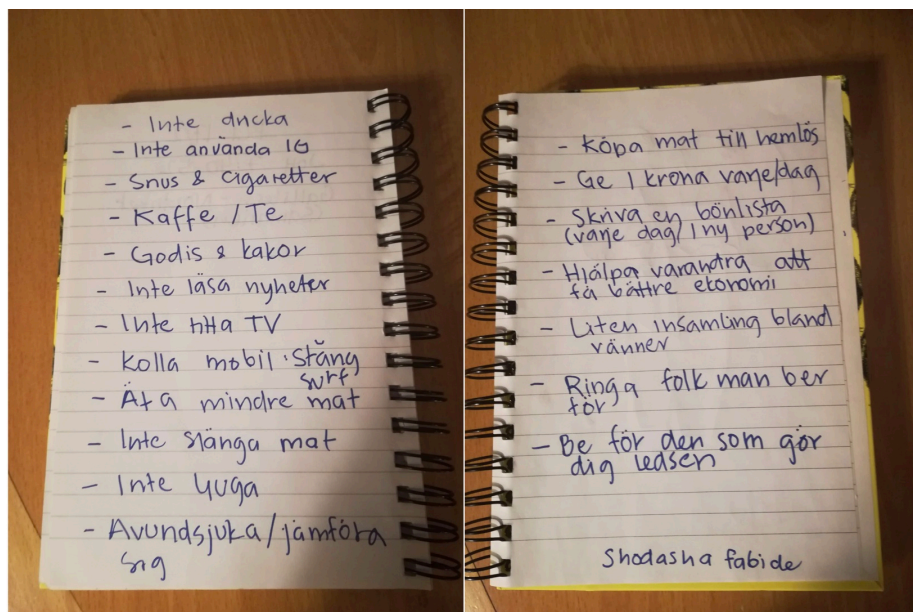 - Inte dricka
- Inte använda IG
- Snus & cigaretter
- Kaffe / Te
- Godis & kakor
- Inte läsa nyheter
- Inte titta TV
- Kolla mobil. Stäng
surf
- Äta mindre mat
- Inte slänga mat
- Inte ljuga
- Avundsjuka/jämföra
sig
- Köpa mat till hemlös
- Ge 1 krona varje/dag
- Skriva en bönlista
(varje dag/1 ny person)
- Hjälpa varandra att
få bättre ekonomi
- Liten insamling bland
vänner
- Ringa folk man ber
för
- Be för den som gör
dig ledsen
Shodasha fabide